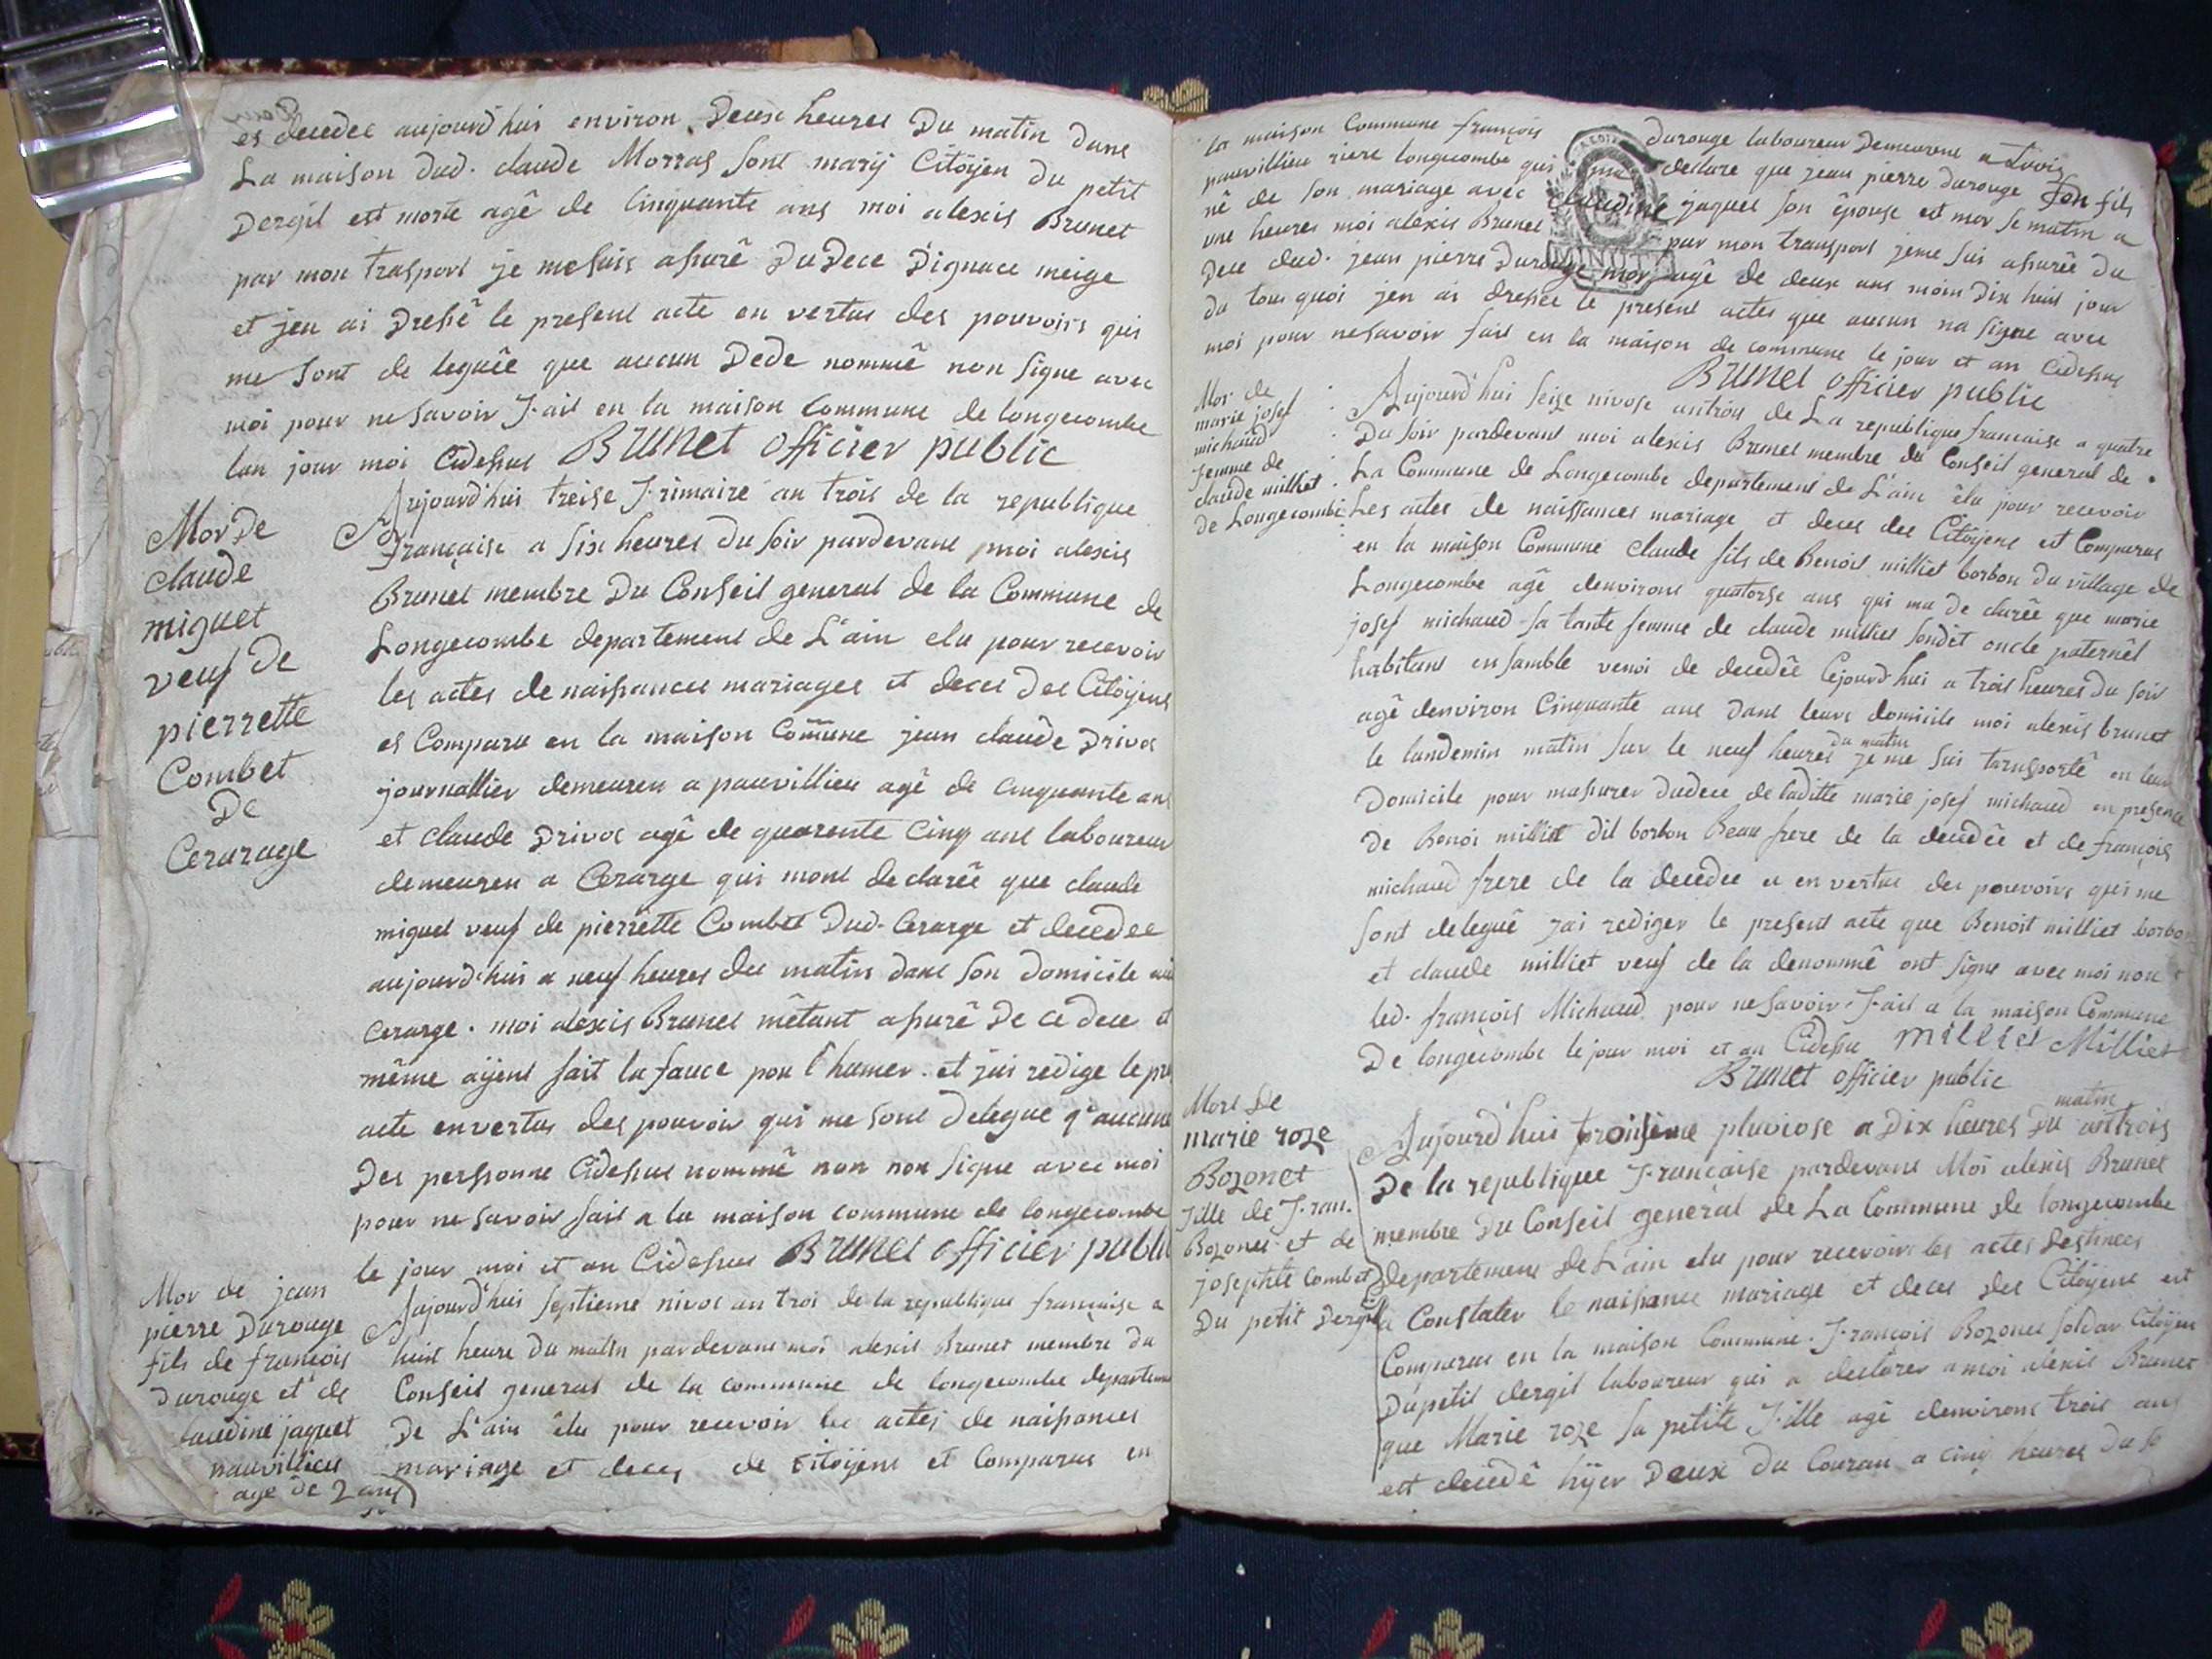 es decedee aujourd'hui environ Deux heures Du matin dans
La maison dud. claude Morras sont marij Citoÿen du petit
Dergil est morte agê de Cinquante ans moi alexis Brunet
par mon trasport je mesuis asurê Du Dece Dignace meige
et jen ai Dresê le present acte en vertus des pouvoirs qui
me sont de leguêe que aucun Dede nommê non signe avec
moi pour ne savoir Fait en la maison Commune de longecombe
lan jour moi Cidesus Brunet officier public
Mor De
claude
miguet
veuf De
pierrette
Combet
De
Cerarage
Aujourd'hui treise Frimaire an trois de la republique
Française a six heures du soir pardevant moi alexis
Brunet membre Du Conseil general de la Commune de
Longecombe departement de L'ain elu pour recevoir
les actes de naisances mariages et deces des Citoÿens
es Comparu en la maison Comune jean claude Drivos
journallier demeuren a pauvillieu agê de cinquante ans
et claude Drivos agê de quarente Cinq ans laboureur
demeuren a Cerarge qui mont declarêe que claude
miguet veuf de pierrette Combet Dud. Cerarge et decedee
aujourd'hui a neuf heures du matin dans son domicile
Cerarge. moi alexis Brunet mêtant asurê De ce dece et
même aÿent fait la fauce pou l'humer. et jai redige le pre
acte en vertus des pouvoir qui me sont delegue q'aucune
Des personne Cidesus nommê non non signe avec moi
pour ne savoir fait a la maison commune de longecombe
le jour moi et an Cidesus Brunet officier public
Mor de jean
pierre Durouge
fils de françois
Durouge et de
claudine jaquet
pauvillieu
age de 2 ans
Aujourd'hui septieme nivos an trois de la republique française a
huit heure Du matin pardevant moi alexis Brunet membre du
Conseil general de la commune de longecombe departeme
De L'ain êlu pour recevoir les actes de naisances
mariage et deces de Citoÿens et Comparus en
la maison Commune françois Durouge laboureur Demeurent a
pauvillieu riere longecombe qui ma declare que jean pierre Durouge son fils
nê de son mariage avec claudine jaquet son êpouse est mor se matin a
une heures moi alexis Brunet par mon transport jeme suis asurêe du
Dece dud. jean pierre Durouge mor agê de deux ans moin Dix huit jour
du tout quoi jen ai dresêe le present actes que aucun na signe avec
moi pour ne savoir fait en la maison de commune le jour et an Cidesus
Brunet officier public
Mor de
marie josef
michaud
femme de
claude milliet
de Longecombe
Aujourd'hui seize nivose an trois de La republique francaise a quatre
Du soir pardevant moi alexis Brunet membre du Conseil general de
La Commune de Longecombe departement de L'ain êlu pour recevoir
Les actes de naissances mariage et deces des Citoÿens est Comparus
en la maison Commune claude fils de Benoit milliet borbon du village de
Longecombe agê denvirons quatorse ans qui ma de clarêe que marie
josef michaud sa tante femme de claude milliet sondit oncle paternêl
habitant ensamble venoi de decedêe Cejourd'hui a trois heures Du soir
agê denviron Cinquante ans Dans leurs domicile moi alexis brunet
le landemin matin sur le neuf heures du matin je me sui transportê en leur
Domicile pour masurer dudece de laditte marie josef michaud en presence
De Benoi milliet dit borbon Beau frere de la decedêe et de françois
michaud frere de la decedee et en vertus des pouvoirs qui me
sont deleguê jai rediger le present acte que Benoit milliet borbon
et claude milliet veuf de la denommê ont signe avec moi non
led. françois Michaud pour ne savoir. Fait a la maison Commune
De longecombe le jour moi et an Cidesu milliet Milliet
Brunet officier public
Mort De
marie roze
Bozonet
Fille de Fran.
Bozonet et de
josephte Combet
Du petit Dergil
Aujourd'hui troisieme pluviose a Dix heures Du matin an trois
De la republique Française pardevant Moi alexis Brunet
membre Du Conseil general de La Commune de longecombe
departement de L'ain elu pour recevoir les actes Destinees
a Constater le naisance mariage et deces des Citoÿens est
Comparus en la maison Commune. François Bozonet soldar Citoÿen
Du petit dergil laboureur qui a declarer a moi alexis Brunet
que Marie roze sa petite Fille agê denvirons trois ans
est decedê hÿer Deux du Couran a cinq heures Du so
MINUTE